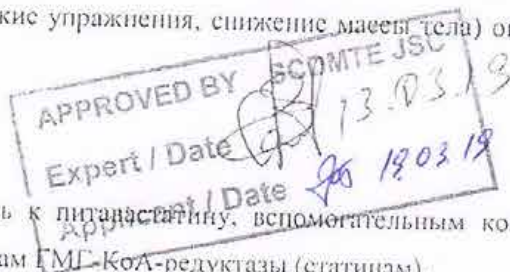 кие упражнения, снижение массы тела)
APPROVED BY SCOMTE JSC
Expert / Date 13.03.19
Applicant / Date 19.03.19
ь к питавастатину, вспомогательным ко
ам ГМГ-КоА-редуктазы (статинам)